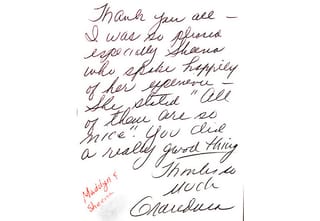 Thank you all –
I was so pleased
especially Sheena
who spoke happily
of her experience –
She stated "All
of them are so
nice". You did
a really good thing
Thanks so
much
Madilyn &
Sheena